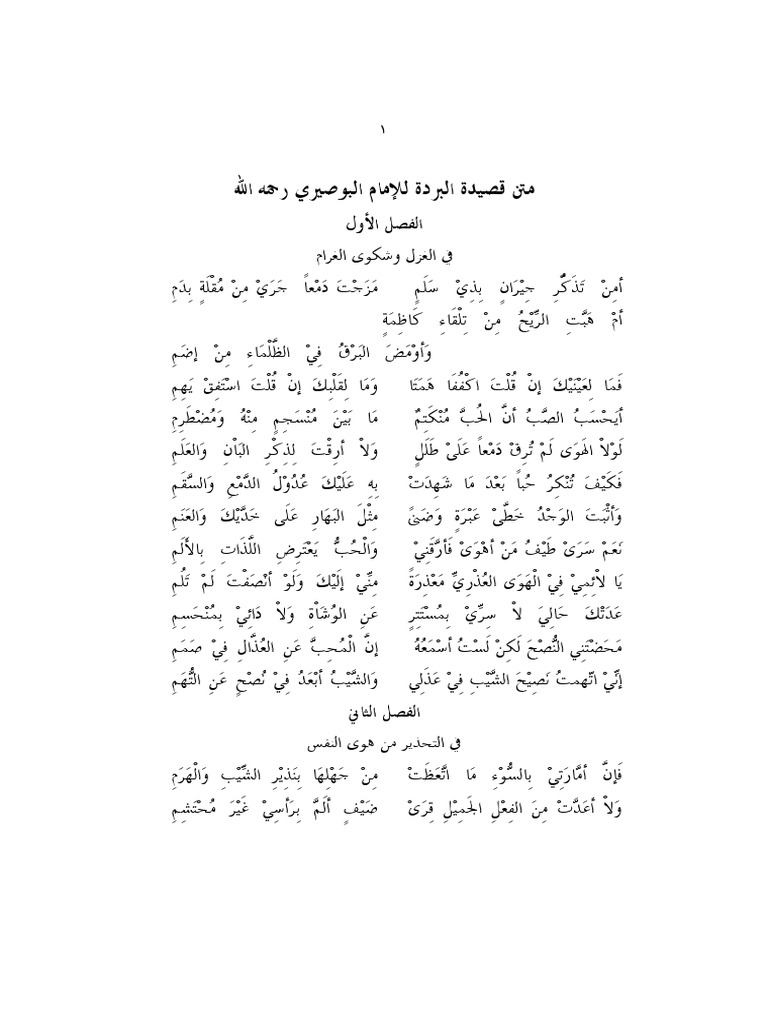 ١
متن قصيدة البردة للإمام البوصيري رحمه الله
الفصل الأول
في الغزل وشكوى الغرام
أمِنْ تَذَكُّرِ جِيْرَانٍ بِذِيْ سَلَمٍ مَزَجْتَ دَمْعاً جَرَيْ مِنْ مُقْلَةٍ بِدَمِ
أمْ هَبَّتِ الرِّيْحُ مِنْ تِلْقَاءِ كَاظِمَةٍ
وَأوْمَضَ البَرْقُ فِيْ الظَّلْمَاءِ مِنْ إضَمِ
فَمَا لِعَيْنَيْكَ إنْ قُلْتَ اكْفُفَا هَمَتَا وَمَا لِقَلْبِكَ إنْ قُلْتَ اسْتَفِقْ يَهِمِ
أيَحْسَبُ الصَّبُّ أنَّ الحُبَّ مُنْكَتِمٌ مَا بَيْنَ مُنْسَجِمٍ مِنْهُ وَمُضْطَرِمِ
لَوْلاْ الهَوَى لَمْ تُرِقْ دَمْعاً عَلَىْ طَلَلٍ وَلاْ أرِقْتَ لِذِكْرِ البَاْنِ وَالعَلَمِ
فَكَيْفَ تُنْكِرُ حُباً بَعْدَ مَا شَهِدَتْ بِهِ عَلَيْكَ عُدُوْلُ الدَّمْعِ وَالسَّقَمِ
وَأثْبَتَ الوَجْدُ خَطَّيْ عَبْرَةٍ وَضَنىً مِثْلَ البَهَارِ عَلَى خَدَّيْكَ وَالعَنَمِ
نَعَمْ سَرَىْ طَيْفُ مَنْ أهْوَىْ فَأرَّقَنِيْ وَالْحُبُّ يَعْتَرِضُ اللَّذَاتِ بِالألَمِ
يَا لاْئِمِيْ فِيْ الْهَوَى العُذْرِيِّ مَعْذِرَةً مِنِّيْ إلَيْكَ وَلَوْ أنْصَفْتَ لَمْ تَلُمِ
عَدَتْكَ حَالِيَ لاْ سِرِّيْ بِمُسْتَتِرٍ عَنِ الوُشَاْةِ وَلاْ دَائِيْ بِمُنْحَسِمِ
مَحَضْتَنِي النُّصْحَ لَكِنْ لَسْتُ أسْمَعُهُ إنَّ الْمُحِبَّ عَنِ العُذَّالِ فِيْ صَمَمِ
إنِّيْ اتّهمتُ نَصِيْحَ الشَّيْبِ فِيْ عَذَلِي وَالشَّيْبُ أبْعَدُ فِيْ نُصْحٍ عَنِ التُّهَمِ
الفصل الثاني
في التحذير من هوى النفس
فَإنَّ أمَّارَتِيْ بِالسُّوْءِ مَا اتَّعَظَتْ مِنْ جَهْلِهَا بِنَذِيْرِ الشَّيْبِ وَالْهَرَمِ
وَلاْ أعَدَّتْ مِنَ الفِعْلِ الجَمِيْلِ قِرَىْ ضَيْفٍ ألَمَّ بِرَأسِيْ غَيْرَ مُحْتَشِمِ